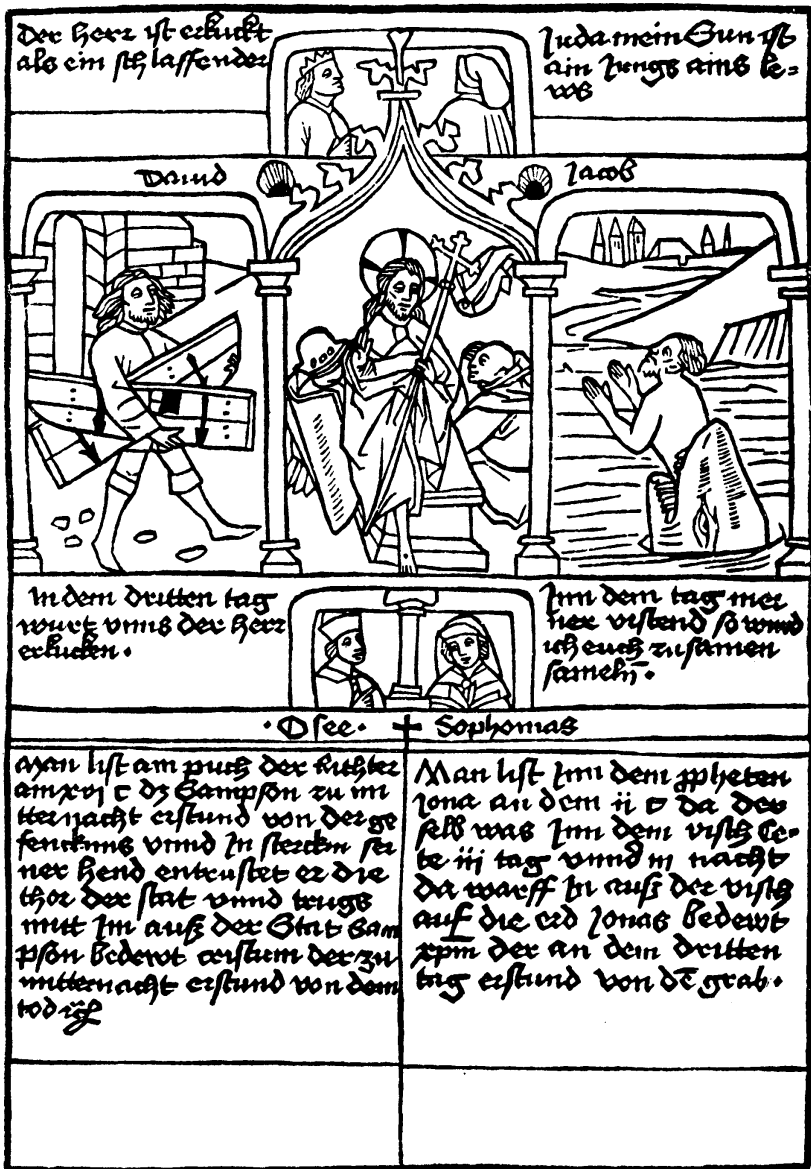 Der herr ist erkuckt
als ein schlaffender
Juda mein Sun ist
ain Jungs ains le-
ws
Dauid
Jacob
In dem dritten tag
wurt vnns der herr
erkucken.
Jnn dem tag mei
ner vrstend so wird
ich euch zu samen
sameln.
Osee. Sophonias
Man list am puch der Richter
am xvj c dz Sampson zu mi
tternacht erstund von der ge
fencknus vnnd In sterckin sei
ner hend entrustet er die
thor der stat vnnd trugs
mitt Im auß der Stat Sam
pson bedewt cristum der zu
mitternacht erstund von dem
tod
Man list Jnn dem ppheten
Jona an dem ij c da der
selb was Jnn dem visch Ce-
te iij tag vnnd iij nacht
da warff In auß der visch
auf die erd Jonas bedewt
xpm der an dem dritten
tag erstund von dē grab.